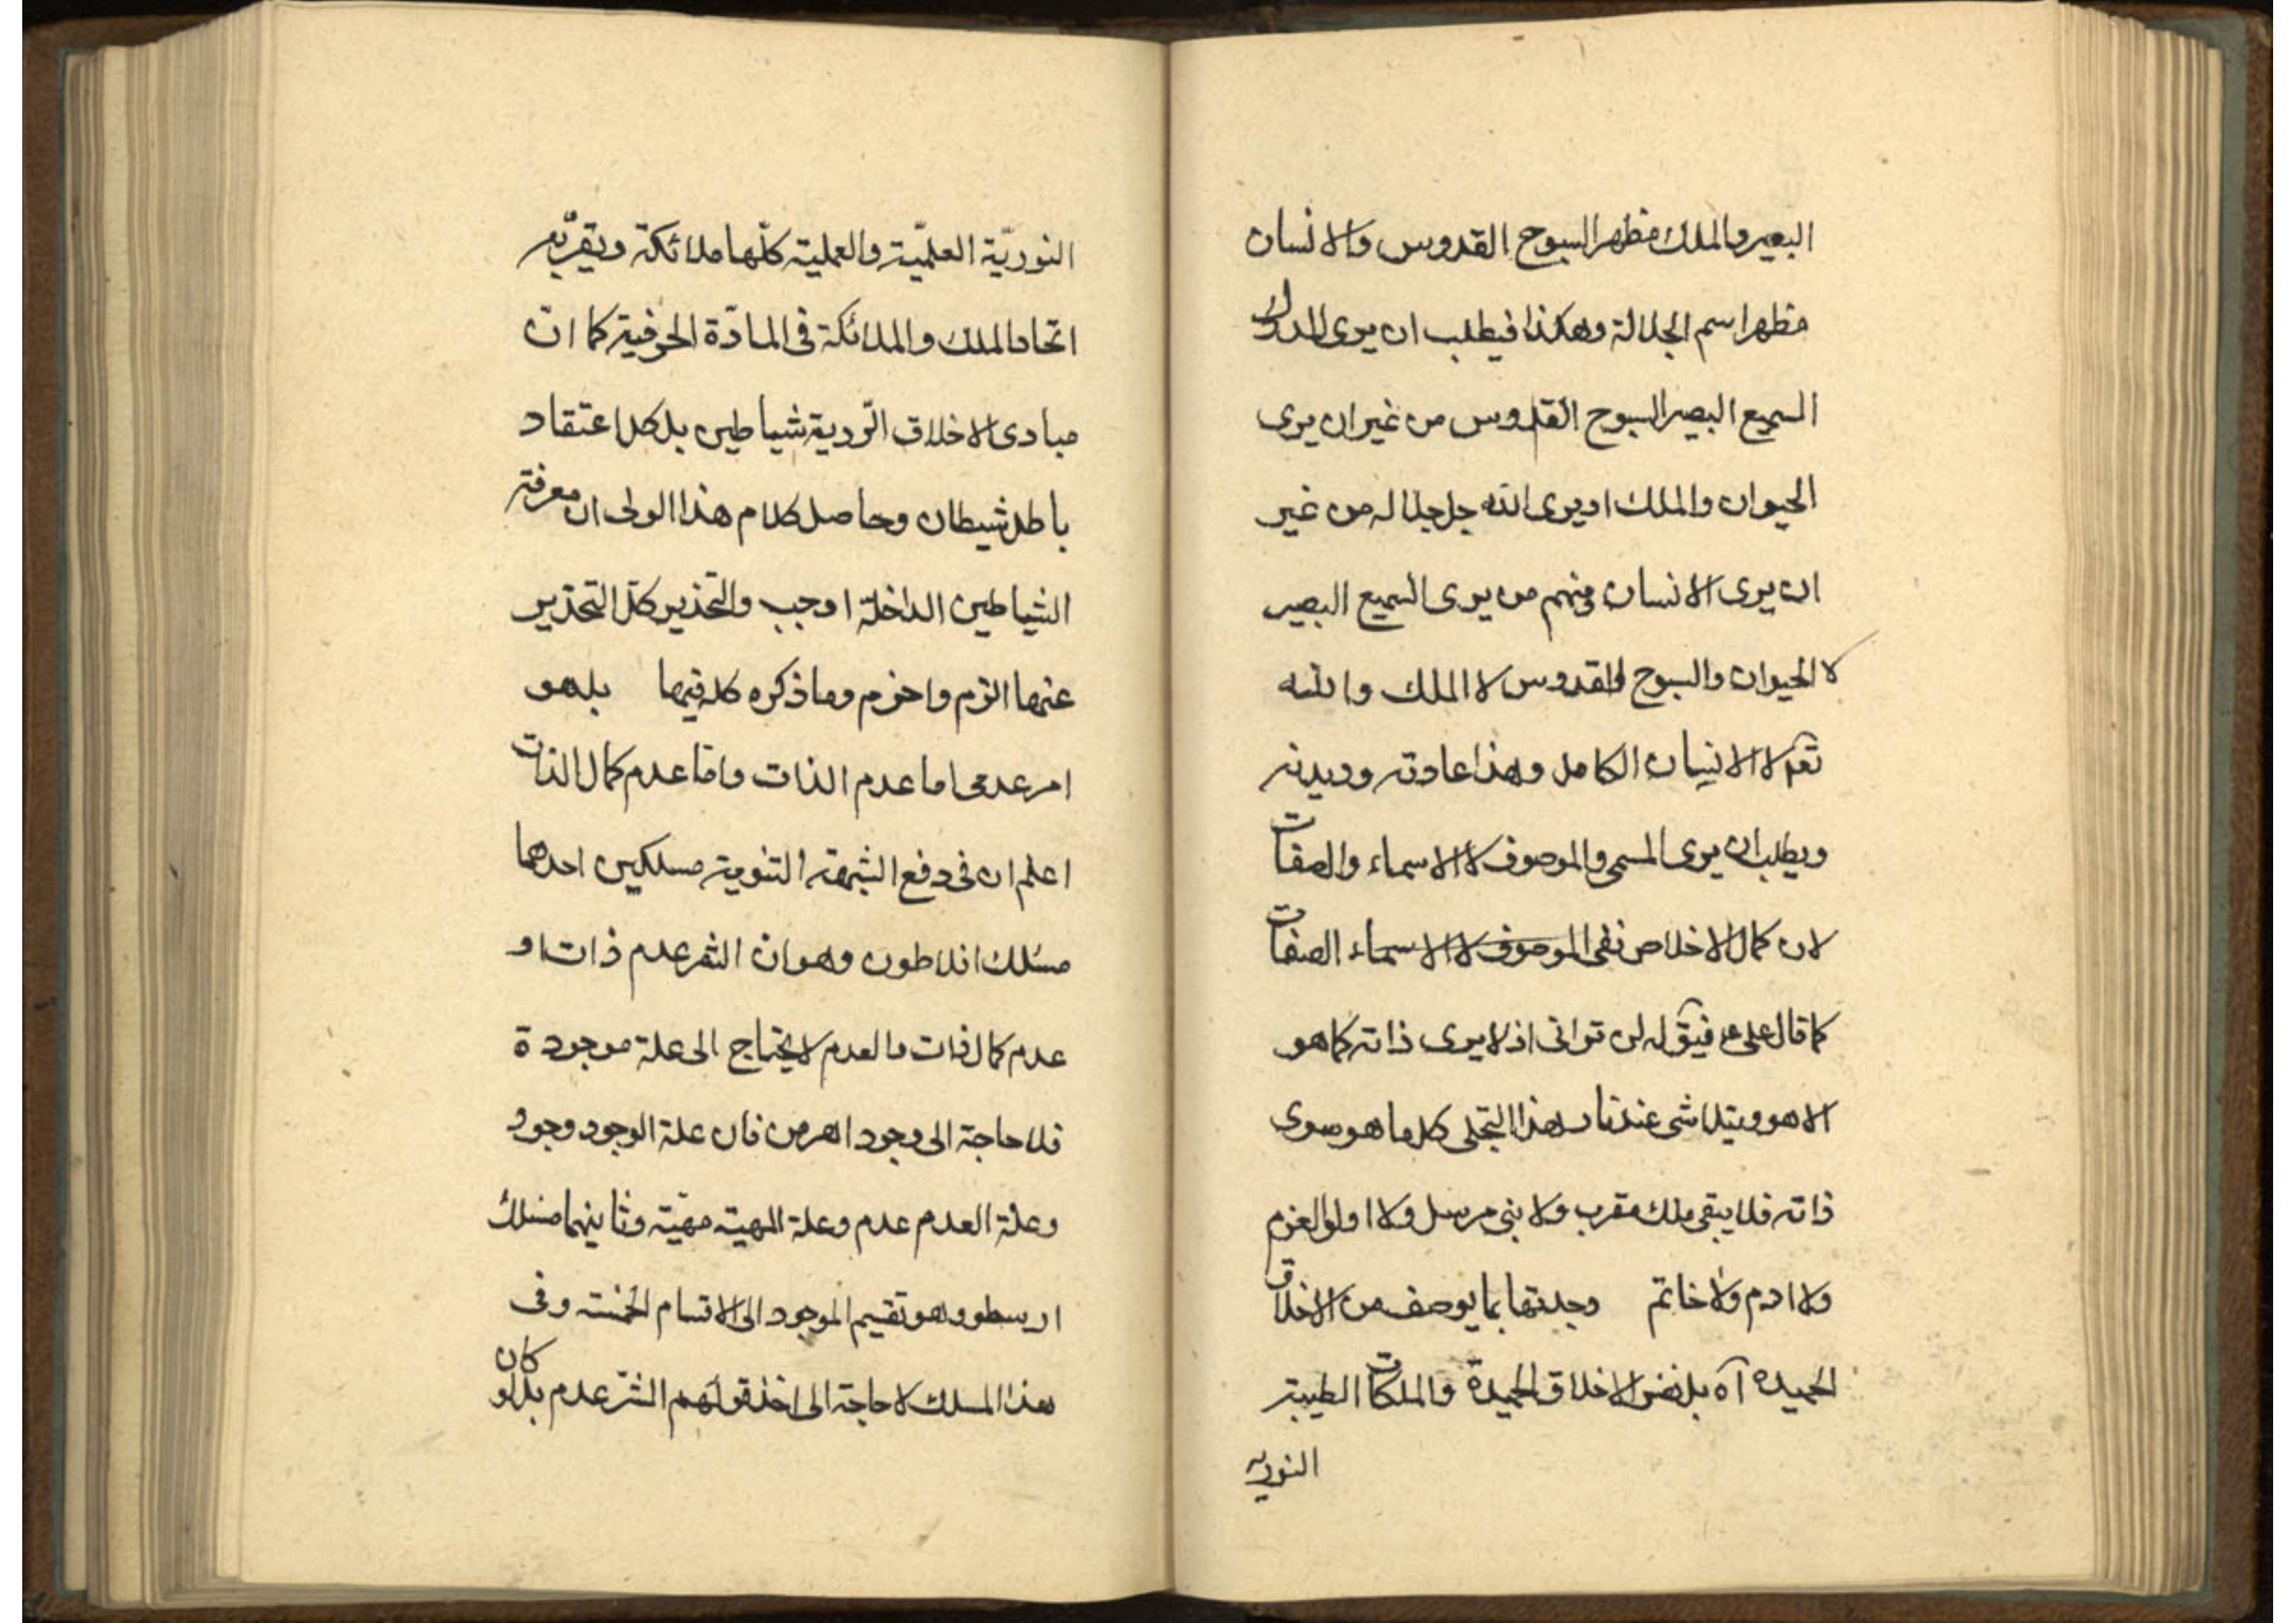 البصير والملك مظهر السبوح القدوس والانسان
مظهر اسم الجلالة وهكذا فيطلب ان يرى المدرك
السميع البصير السبوح القدوس من غير ان يرى
الحيوان والملك او يرى الله جل جلاله من غير
ان يرى الانسان فمنهم من يرى السميع البصير
لا الحيوان والسبوح القدوس لا الملك والله
تعم لا الانسان الكامل وهذا عادته وديدنه
ويطلب ان يرى المسمى والموصوف لا الاسماء والصفات
لان كمال الاخلاص نفى الموصوف لا الاسماء الصفات
كما قال على ع فيق له لن ترانى اذ لا يرى ذاته كما هو
الا هو ويتلاشى عند نار هذا التجلى كل ما هو سوى
ذاته فلا يبقى ملك مقرب ولا نبى مرسل ولا اولو العزم
ولا ادم ولا خاتم وجدتها بما يوصف من الاخلاق
الحميده آه بل نفس الاخلاق الحميدة والملكات الطيبة
النوريه
النوريّة العلميّة والعملية كلّها ملائكة ويقرّبه
اتحاد الملك والملائكة فى المادّة الحرفية كما انّ
مبادى الاخلاق الرّدية شياطين بل كل اعتقاد
باطل شيطان وحاصل كلام هذا الولى ان معرفة
الشياطين الداخلة اوجب والتحذير كلّ التحذير
عنها الزم واحزم وما ذكره كله فيها بل هو
امر عدمى اما عدم الذات واما عدم كمال الذات
اعلم ان فى دفع الشبهة الثنوية مسلكين احدهما
مسلك افلاطون وهو ان الشر عدم ذات او
عدم كمال ذات والعدم لا يحتاج الى علة موجودة
فلا حاجة الى وجود اهرمن فان علة الوجود وجود
وعلة العدم عدم وعلة المهية مهيّة وثانيهما مسلك
ارسطو وهو تقسيم الموجود الى الاقسام الخمسة وفى
هذا المسلك لا حاجة الى اخذ قولهم الشر عدم بل لو كان